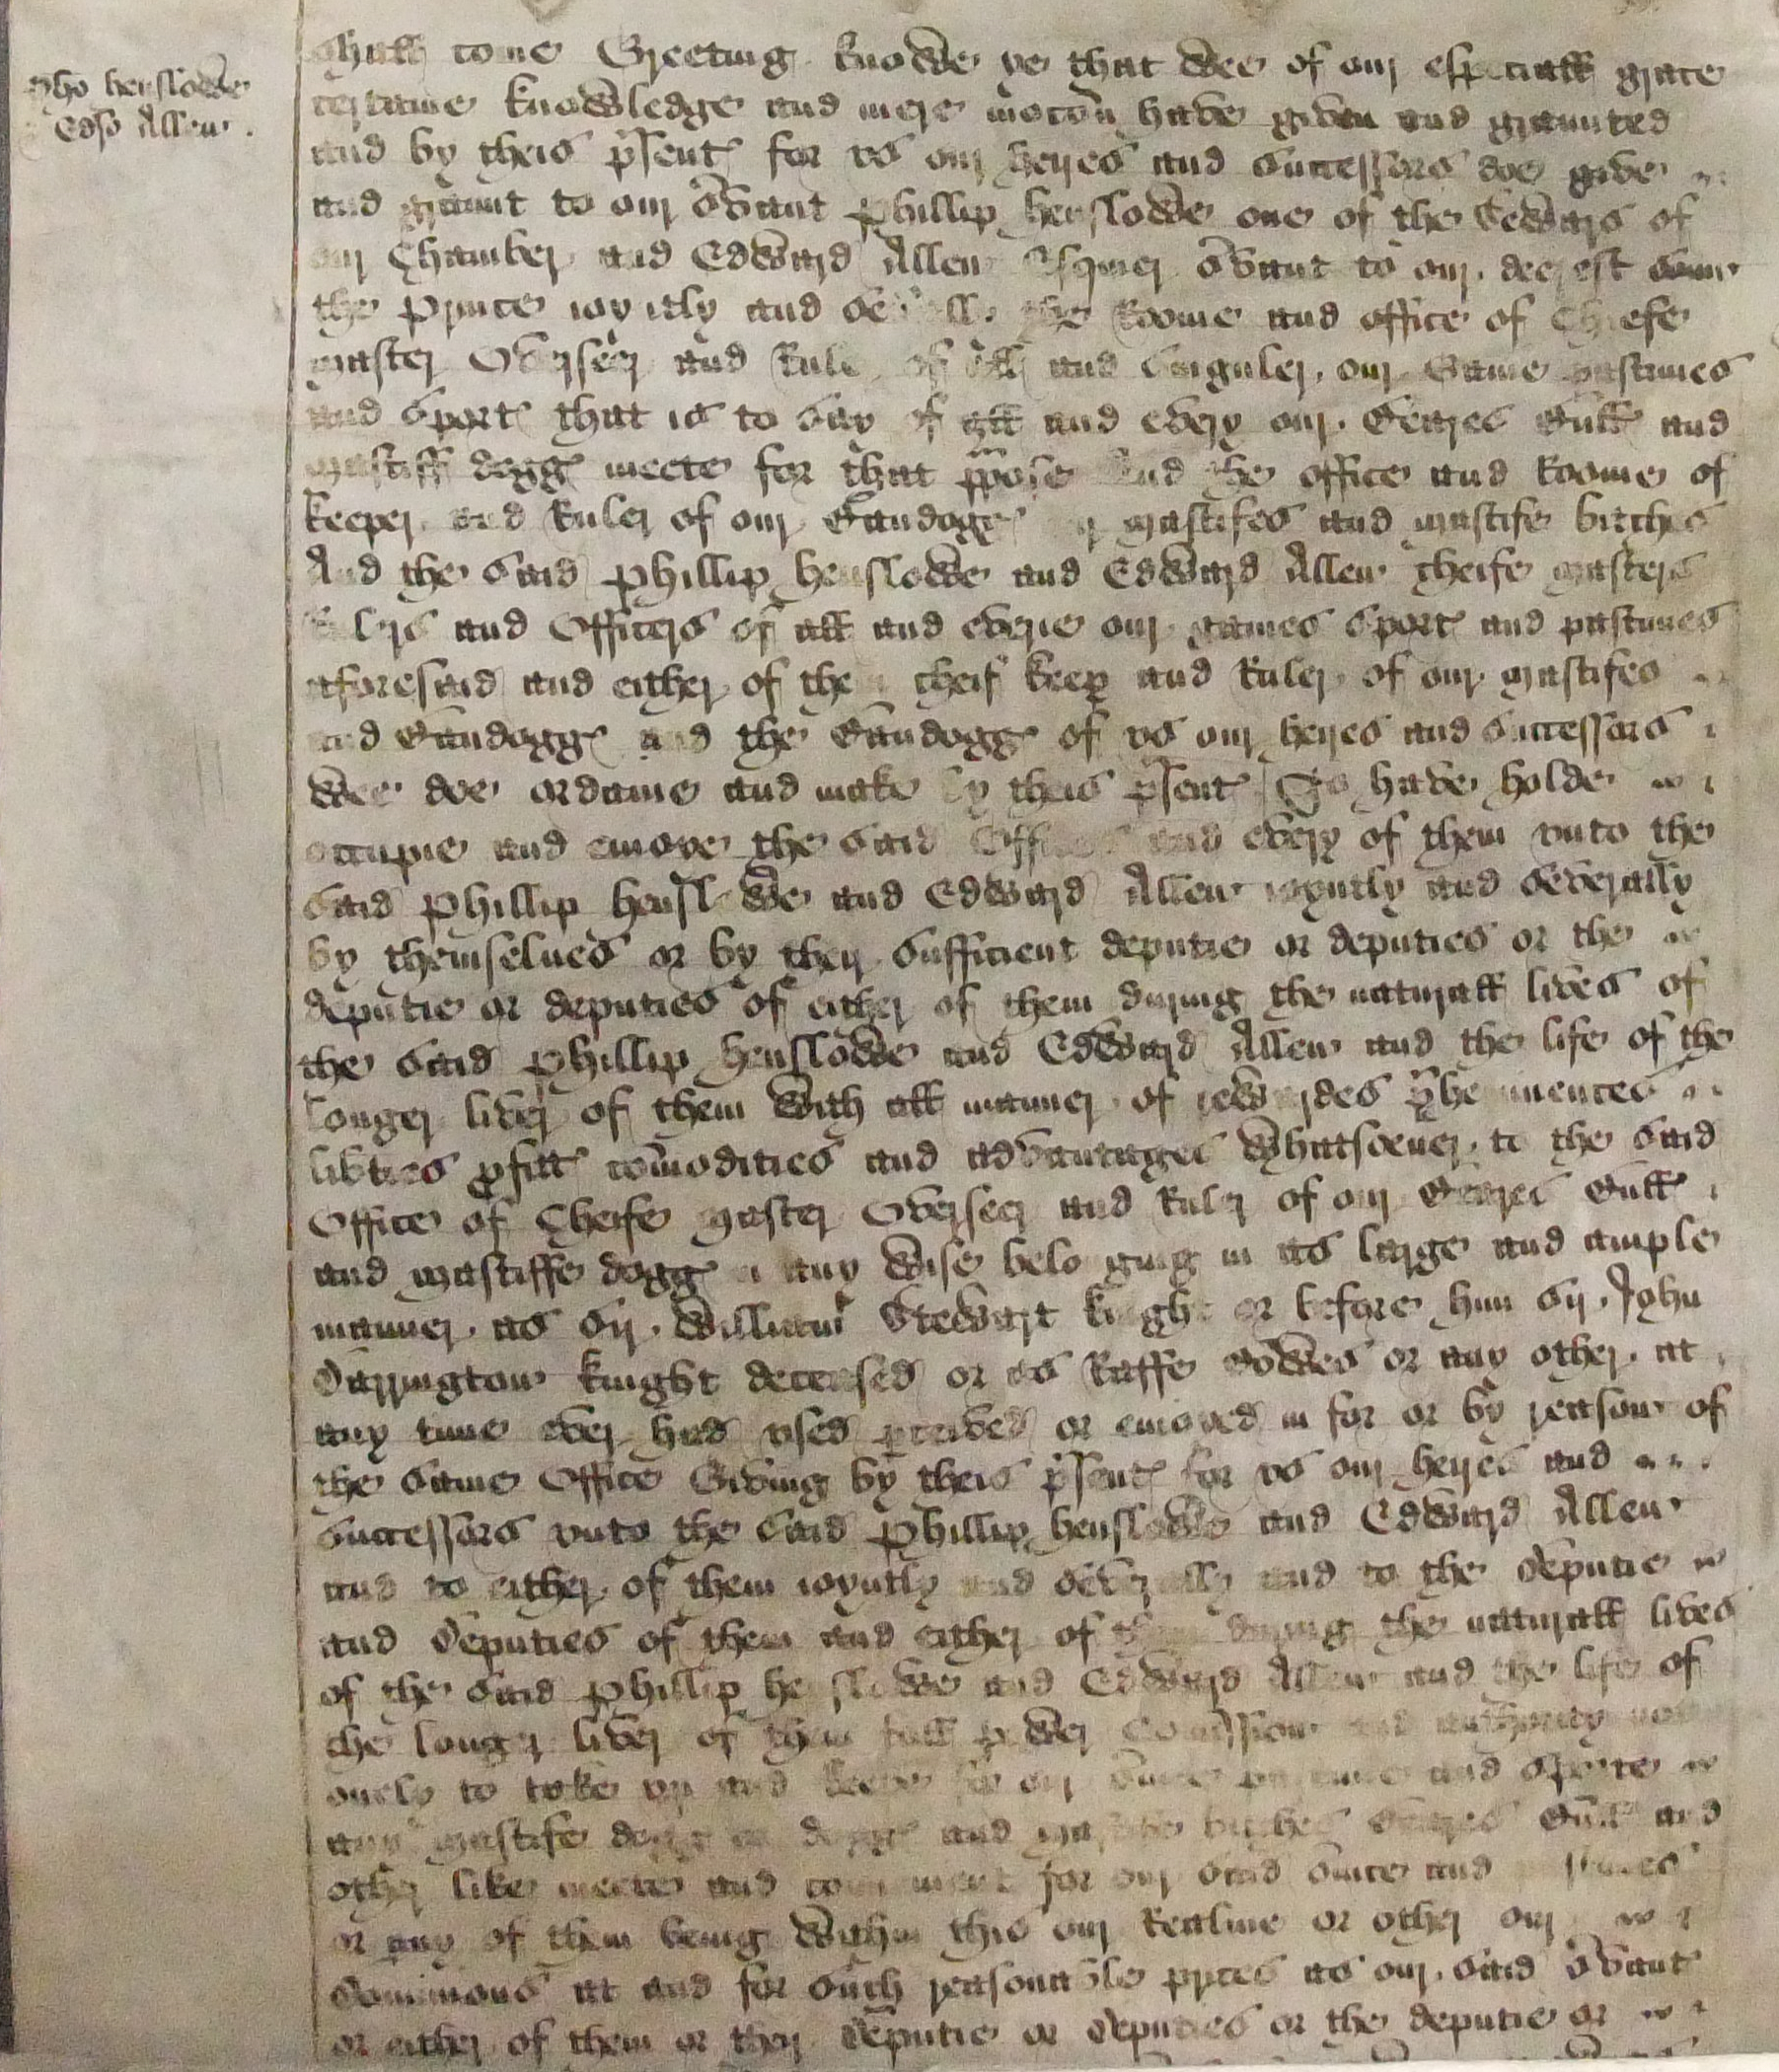 Pho henslowe
Edo Allen
shall come Greeting knowe ye that wee of our especiall grace
certaine knowledge and mere mocon have given and graunted
and by theis psent for vs our heyres and Successors doe give
and graunt to our Svant Phillip henslowe one of the Sewers of
our Chamber and Edward Allen Esquier Svant to our deerest Sonn
the Prince ioyntly and the Roome and office of Chiefe
master Overseer and Rule of all and Singuler our Game pastimes
and Sport that is to Say of all and every our Beares Bull and
mastiff dogg meete for that ppose And the office and Roome of
keeper and Ruler of our Bandogg mastifes and mastife bitches
And the Said Phillip henslowe and Edward Allen cheife masters
Rulers and Officers of all and everie our games Sport and pastimes
aforesaid and either of them cheif keep and Ruler of our mastifes
and Bandogg and the Bandogg of vs our heyres and Successors
Wee doe ordaine and make by theis psent To have holde
occupie and enioye the Said Offices and every of them vnto the
Said Phillip henslowe and Edward Allen ioyntly and Severally
by themselues or by their Sufficient deputie or deputies or the
deputie or deputies of either of them during the naturall lives of
the Said Phillip henslowe and Edward Allen and the life of the
longer liver of them With all manner of rewardes
libties pfitt comodities and advantages Whatsoeuer to the Said
Office of Cheife master Overseer and Ruler of our Beares Bull
and mastiffe dogg in any Wise belonging in as large and ample
manner as Sir William Stewart knight or before him Sir John
Darrington knight deceased or as Raffe Bowes or any other at
any time ever had vsed pceived or enioyed in for or by reason of
the Same Office Giving by theis psent for vs our heyres and
Successors vnto the Said Phillip henslowe and Edward Allen
and to either of them ioyntly and Severally and to the Deputie
and Deputies of them and either of them during the naturall lives
of the Said Phillip henslowe and Edward Allen and the life of
the longer liver of them full power Comission and authority not
onely to take vp and keepe for our Svice pastime and Sporte
any mastife dogg or dogg and mastife bitches Beares Bull and
other like meete and convenient for our Said Svice and pastimes
or any of them being Within this our Realme or other our
Dominions at and for Such reasonable prices as our Said Svant
or either of them or their Deputie or Deputies or the deputie or